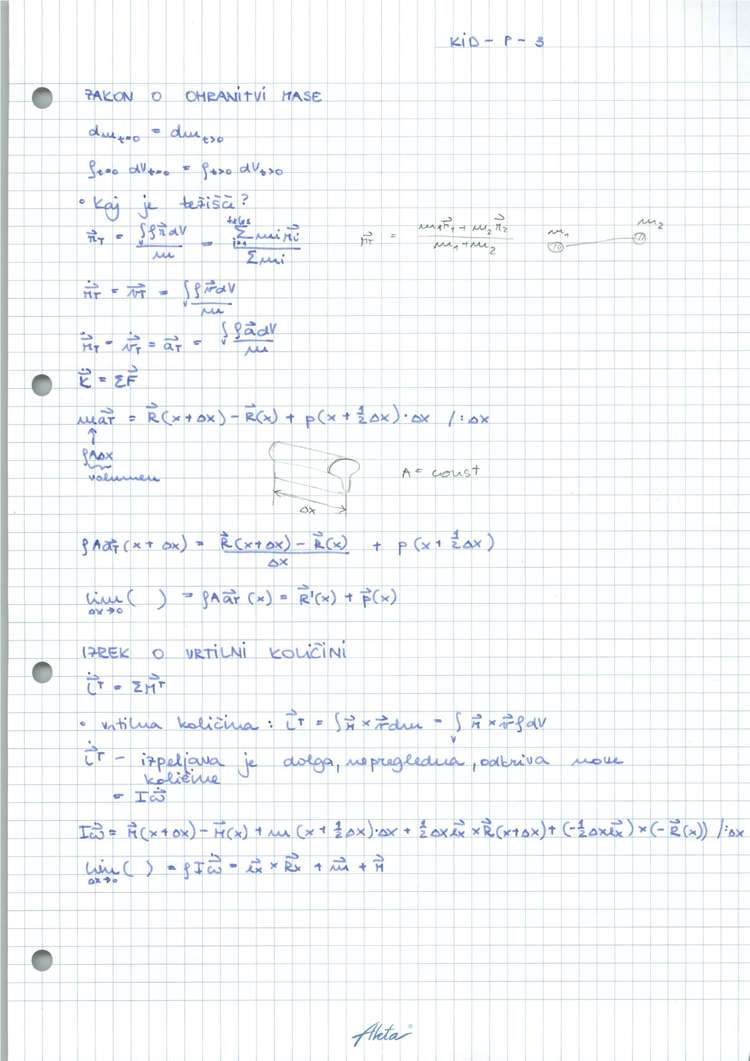 KID - P - 3
ZAKON O OHRANITVI MASE
dm_{t=0} = dm_{t>0}
ρ_{t=0} dV_{t=0} = ρ_{t>0} dV_{t>0}
• Kaj je težišče?
\vec{r}_T = \frac{\int_V ρ\vec{r} dV}{m} = \frac{\sum m_i \vec{r}_i}{\sum m_i} \vec{r}_T = \frac{m_1\vec{r}_1 + m_2\vec{r}_2}{m_1 + m_2} m_1 m_2
\dot{\vec{r}}_T = \vec{v}_T = \frac{\int_V ρ\vec{v} dV}{m}
\ddot{\vec{r}}_T = \dot{\vec{v}}_T = \vec{a}_T = \frac{\int_V ρ\vec{a} dV}{m}
\dot{\vec{K}} = Σ\vec{F}
m\vec{a}_T = \vec{R}(x+Δx) - \vec{R}(x) + p(x + \frac{1}{2}Δx)·Δx /:Δx
↑
ρAΔx
volumen
A = const
Δx
ρA\vec{a}_T(x+Δx) = \frac{\vec{R}(x+Δx) - \vec{R}(x)}{Δx} + p(x + \frac{1}{2}Δx)
lim_{Δx→0} ( ) = ρA\vec{a}_T(x) = \vec{R}'(x) + \vec{p}(x)
IZREK O VRTILNI KOLIČINI
\dot{\vec{L}}^T = Σ\vec{M}^T
• vrtilna količina: \vec{L}^T = \int \vec{r} × \vec{v} dm = \int_V \vec{r} × \vec{v} ρ dV
\dot{\vec{L}}^T - izpeljava je dolga, nepregledna, odkriva nove
količine
= I\dot{\vec{ω}}
I\dot{\vec{ω}} = \vec{M}(x+Δx) - \vec{M}(x) + m(x + \frac{1}{2}Δx)·Δx + \frac{1}{2}Δx\vec{e}_x × \vec{R}(x+Δx) + (-\frac{1}{2}Δx\vec{e}_x) × (-\vec{R}(x)) /:Δx
lim_{Δx→0} ( ) = ρI\dot{\vec{ω}} = \vec{e}_x × \vec{R}_x + \vec{m} + \vec{M}
Akta